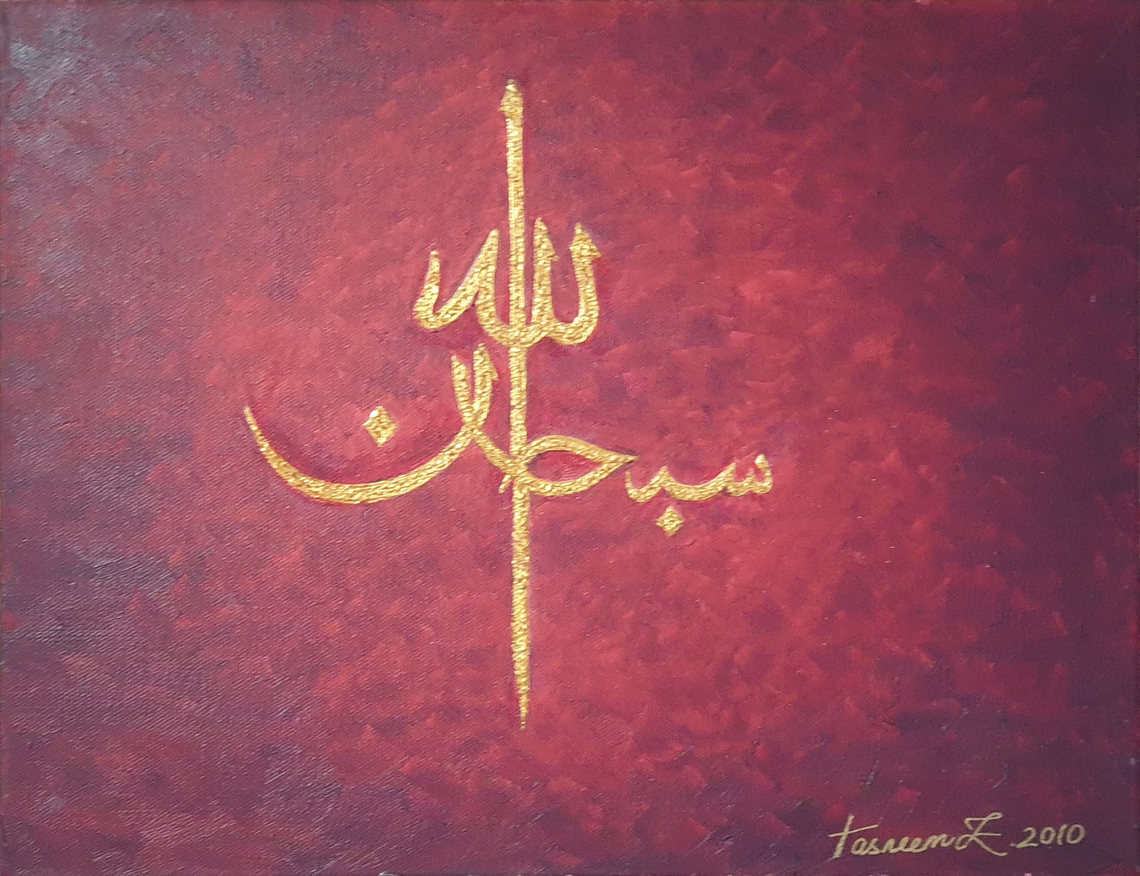 سبحان الله
tasneem Z. 2010